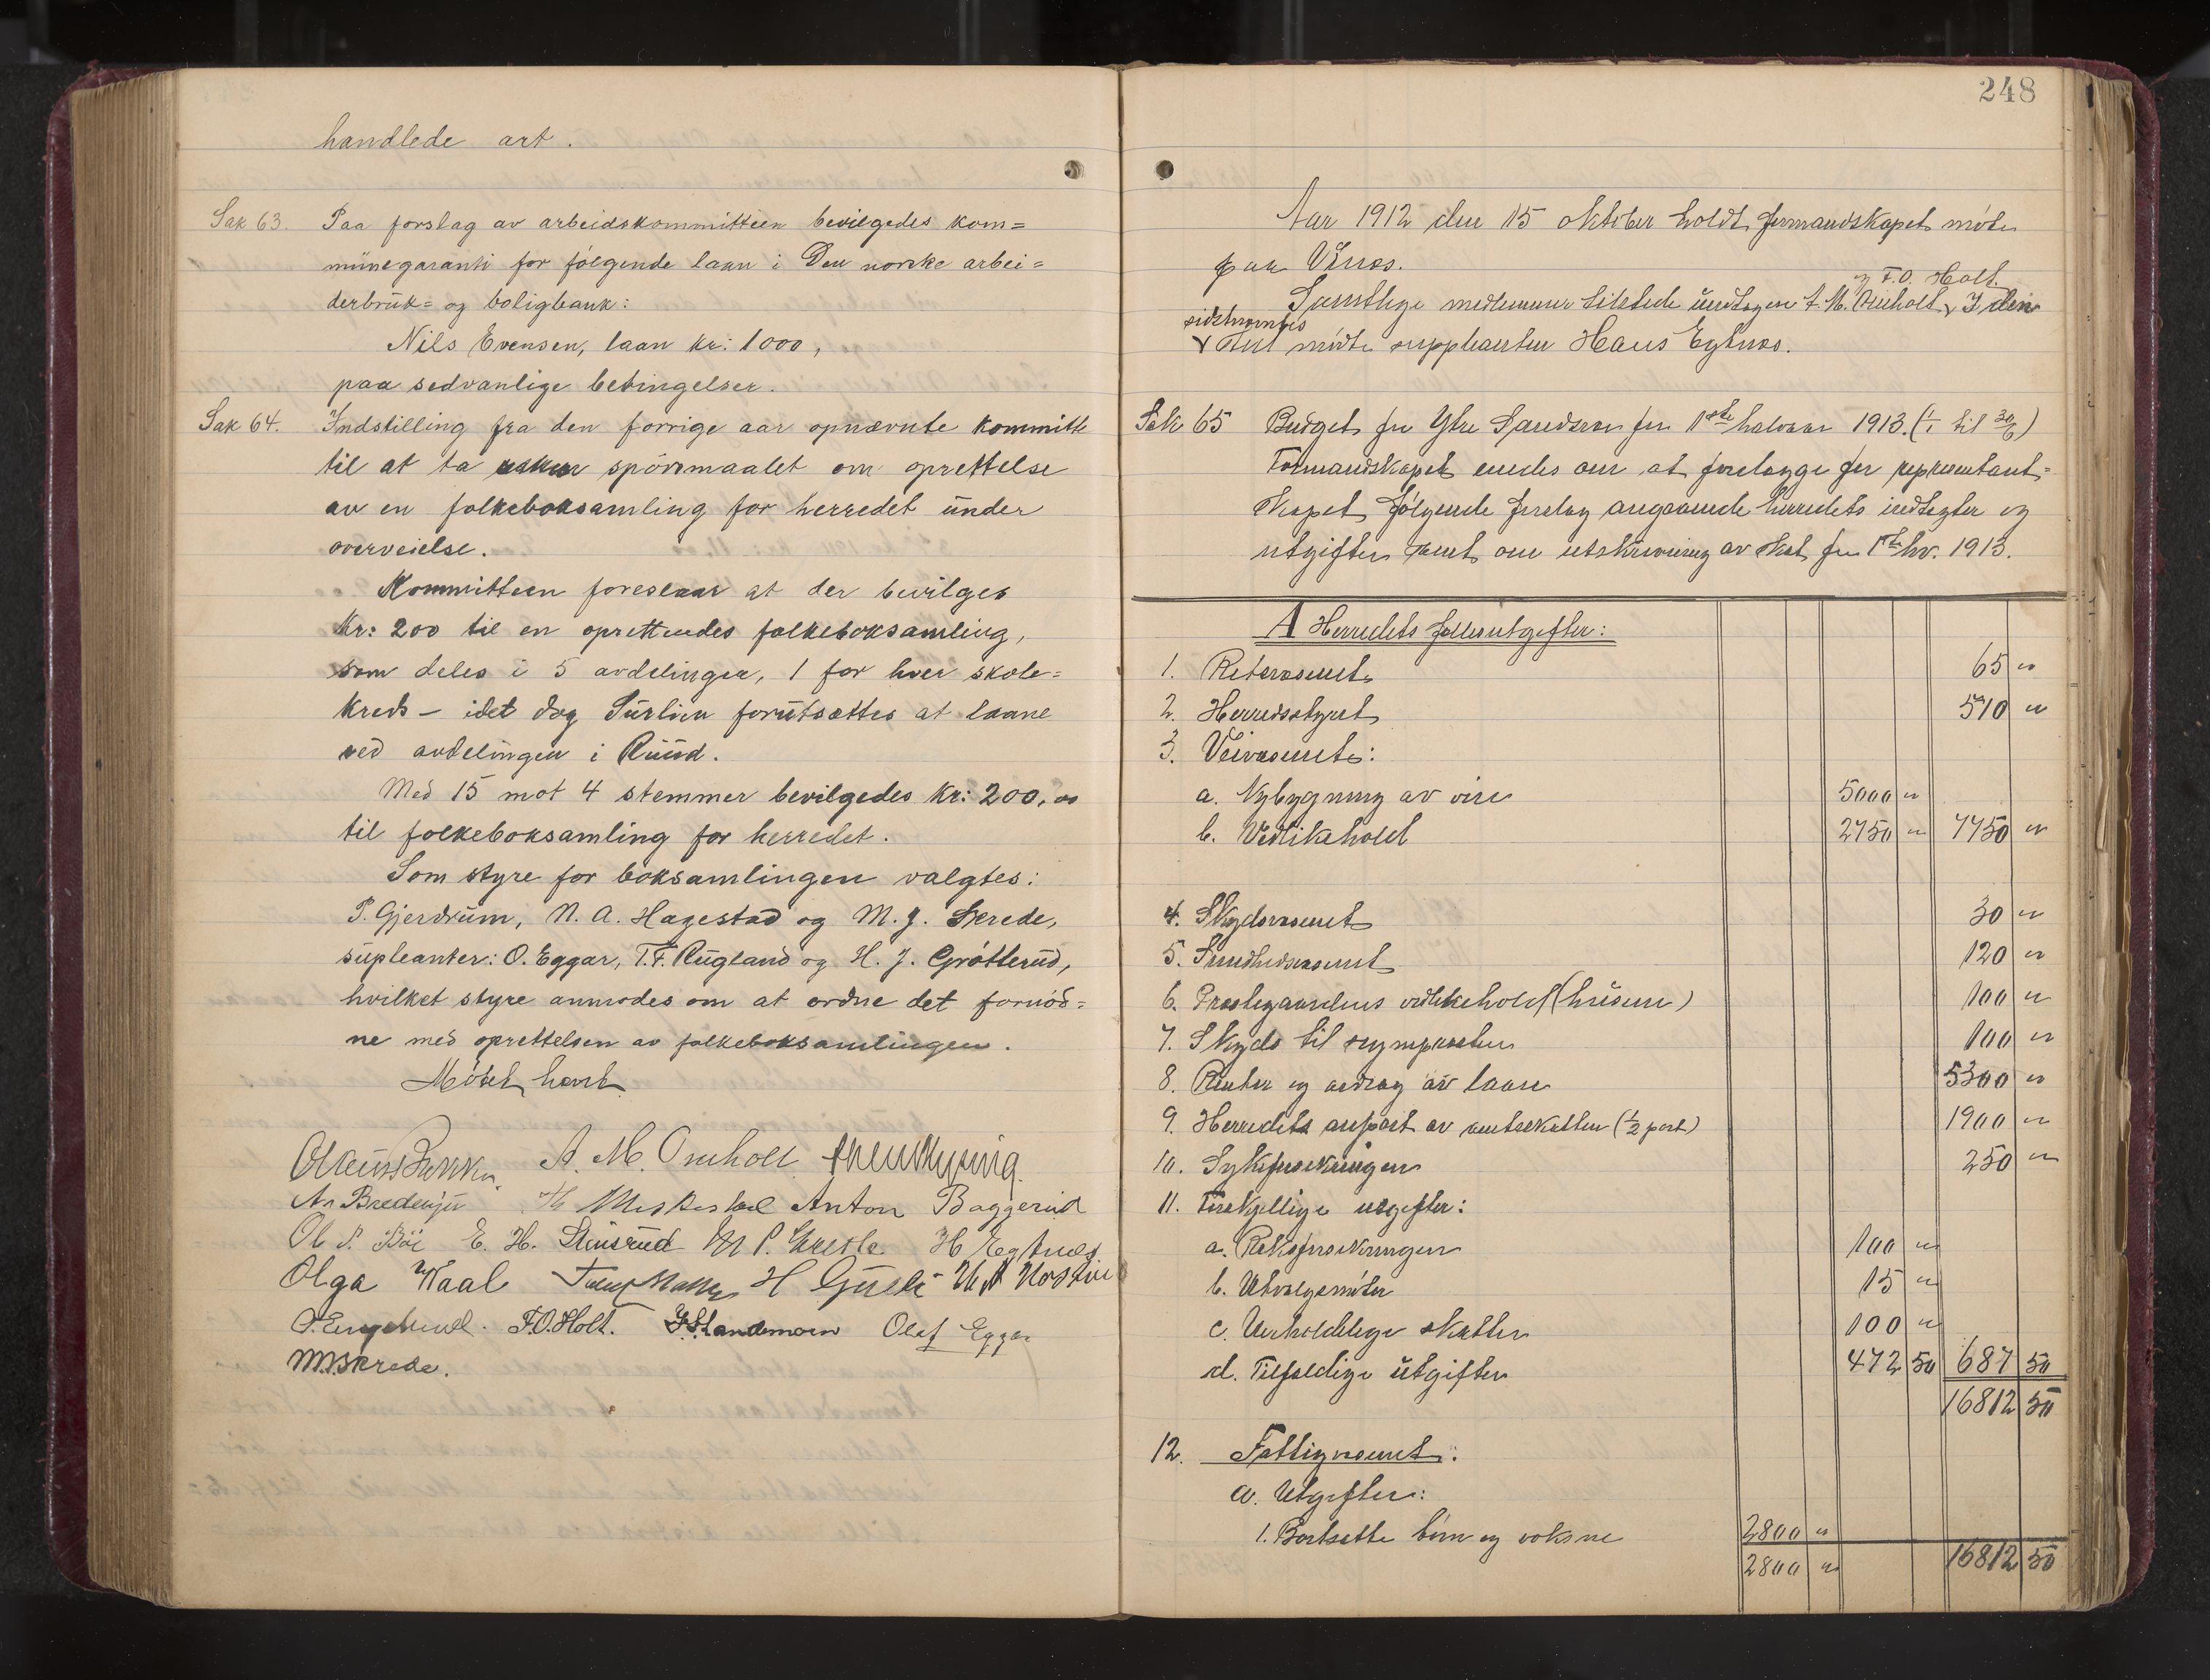 handlede art.
Sak 63. Paa forslag av arbeidskommitteen bevilgedes kom=
munegaranti for følgende laan i Den norske arbei=
derbruk= og boligbank:
Nils Evensen, laan kr: 1000,
paa sedvanlige betingelser.
Sak 64. Indstilling fra den forrige aar opnævnte kommitte
til at ta spörsmaalet om oprettelse
av en folkeboksamling for herredet under
overveielse.
Kommitteen foreslaar at der bevilges
Kr: 200 til en oprettendes folkeboksamling,
som deles i 5 avdelinger, 1 for hver skole=
kreds – idet dog Surlien forutsættes at laane
ved avdelingen i Ruud.
Med 15 mot 4 stemmer bevilgedes Kr: 200,00
til folkeboksamling for herredet.
Som styre for boksamlingen valgtes:
P. Gjerdrum, N. A. Hagestad og M. J. Skrede,
supleanter: O. Eggar, T. F. Rugland og H. J. Grötterud,
hvilket styre anmodes om at ordne det fornöd=
ne med oprettelsen av folkeboksamlingen.
Mötet hævt
A. M. Omholt
Anton Baggerud
Ol P. Böe E. H. Stensrud H Egtnes
Olga Waal
F.O. Holt. Landemoen Olaf Eggar
M.J. Skrede.
248
Aar 1912 den 15 oktober holdt formandskapet möte
paa Vinnes.
og F.O. Holt.
Samtlige medlemmer tilstede undtagen A. M. Omholt, I den
sidstnævntes
sted mödte suppleanten Hans Egtnes.
Sak 65 Budget for Ytre Sandsvær for 1ste halvaar 1913. (1/1 til 30/6)
Formandskapet enedes om at forelægge for repræsentant=
skapet følgende forslag angaaende herredets indtægter og
utgifter samt om utskrivning av skat for 1ste hv. 1913.
A Herredets fællesutgifter:
1. Retsvæsenet 65 "
2. Herredsstyret 510 "
3. Veivæsenet:
a. Nybygning av veie 5000 "
b. Vedlikehold 2750 " 7750 "
4. Skydsvæsenet 30 "
5. Sundhedsvæsenet 120 "
6. Prestegaardens vedlikehold (husene) 100 "
7. Skyds til sogneprесten 100 "
8. Renter og avdrag av laan 5300 "
9. Herredets anpart av amtsskatten (1/2 part) 1900 "
10. Sykeforsikringen 250 "
11. Forskjellige utgifter:
a. Riksforsikringen 100 "
b. Utvalgsmöter 15 "
c. Uerholdelige skatter 100 "
d. Tilfældige utgifter 472 50 687 50
16812 50
12. Fattigvæsenet:
a. Utgifter:
1. Bortsatte börn og voksne 2800 "
2800 " 16812 50